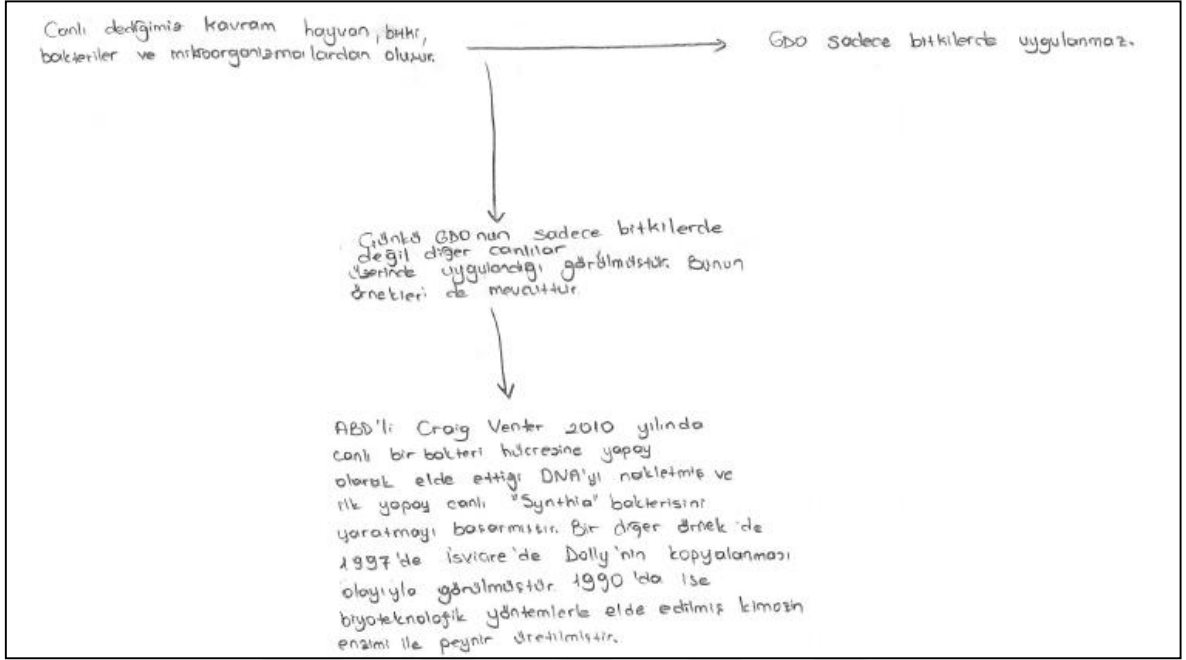 Canlı dediğimiz kavram hayvan, bitki,
bakteriler ve mikroorganizmalardan oluşur.
GDO sadece bitkilerde uygulanmaz.
Çünkü GDO nun sadece bitkilerde
değil diğer canlılar
üzerinde uygulandığı görülmüştür. Bunun
örnekleri de mevcuttur.
ABD'li Craig Venter 2010 yılında
canlı bir bakteri hücresine yapay
olarak elde ettiği DNA'yı nakletmiş ve
ilk yapay canlı "Synthia" bakterisini
yaratmayı başarmıştır. Bir diğer örnek de
1997'de İsviçre'de Dolly'nin kopyalanması
olayıyla görülmüştür. 1990'da ise
biyoteknolojik yöntemlerle elde edilmiş kimozin
enzimi ile peynir üretilmiştir.